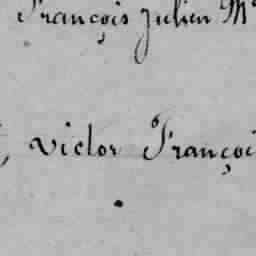 François Julien M
, Victor Françoi